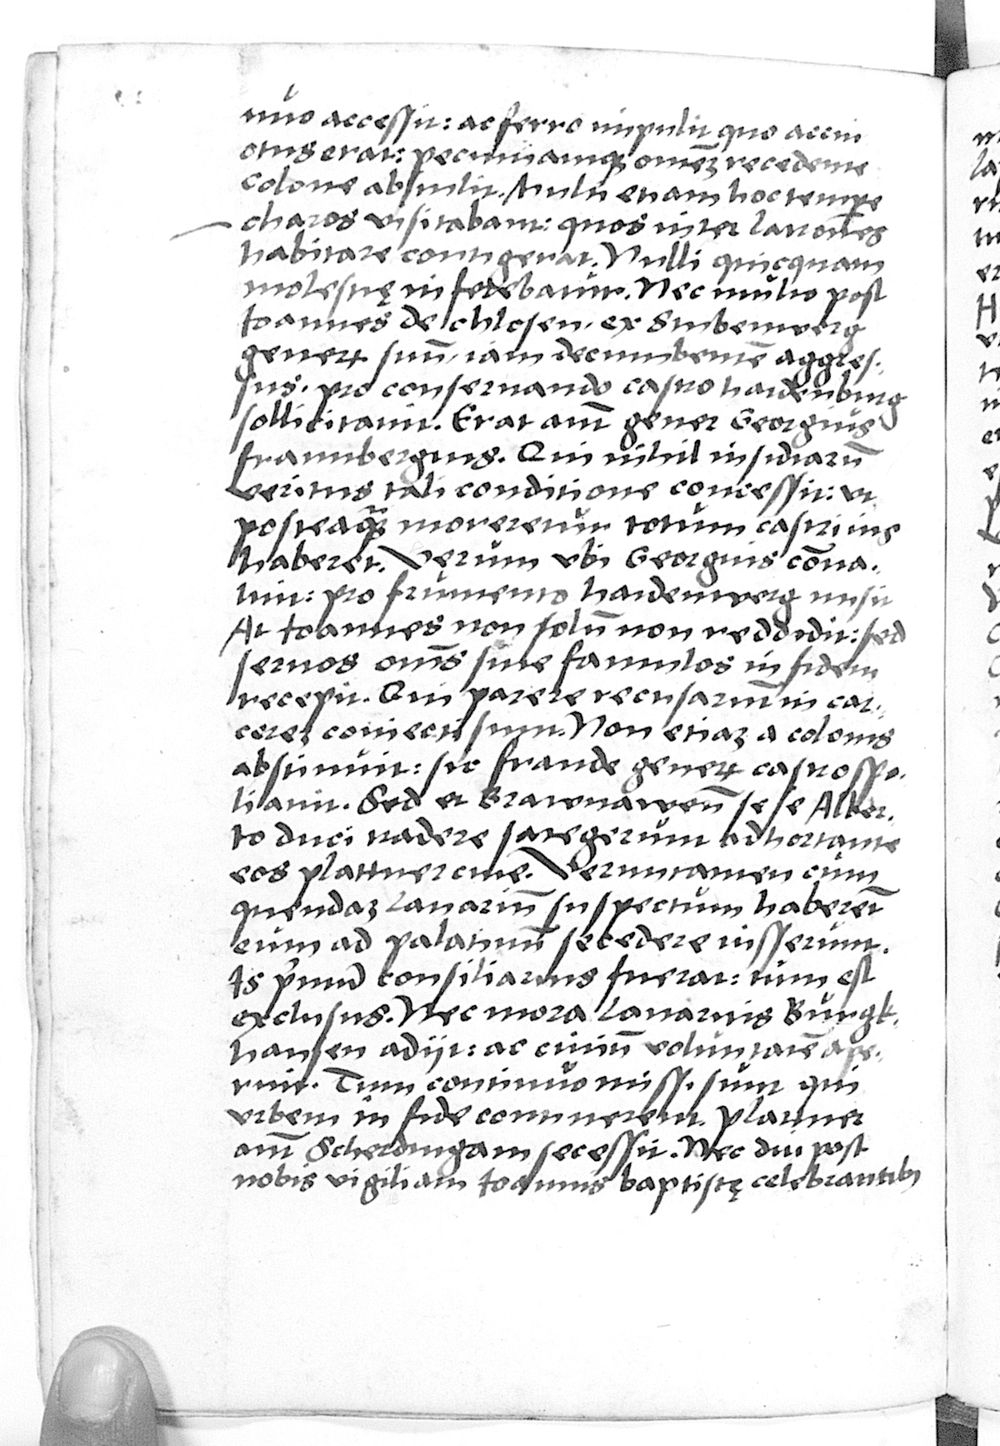 nuo accessit: ac ferro impulit quo accin
ctus erat: pecuniamqꝫ omeꝫ recedente
colone abstulit. Multi etiam hoc tempe
charos visitabant: quos inter latrones
habitare contigerat. Nulli quicquam
molestię inferebatur. Nec multo post
Ioannes de chlosen. ex Stubenwerg
generꝝ suū iam decumbentē aggres.
sus. pro conseruando castro hardenburg
sollicitauit. Erat aūt gener Georgius
fraunbergius. Qui nihil insidiarū
veritus tali conditione concessit: vt
posteaqꝫ moreretur totum castri ius
haberet. Verum vbi Georgius cōua.
luit: pro frumento hardenwerg misit
At Ioannes non solū non reddidit: sed
seruos om̄s siue famulos in fidem
recepit. Qui parere recusarūt in car.
cereꝫ coniecti sunt. Non etiaꝫ a colonis
abstinuit: sic fraude generꝝ castro spo.
liauit. Sed et Brawnawen̄ sese Alber.
to duci tradere sategerunt adhortante
eos plattner ciue. Veruntamen cum
quendaꝫ Lanariū suspectum haberēt
eum ad palatinū secedere iusserunt.
Is p̄mū consiliarius fuerat: tum est
exclusus. Nec mora Lanarius Burgk.
hausen adijt: ac ciuiū voluntatē ape.
ruit. Tum continuo missi sunt qui
vrbem in fide continerent. plattner
aūt Scherdingam secessit. Nec diu post
nobis vigiliam Ioannis baptistę celebrantibꝰ